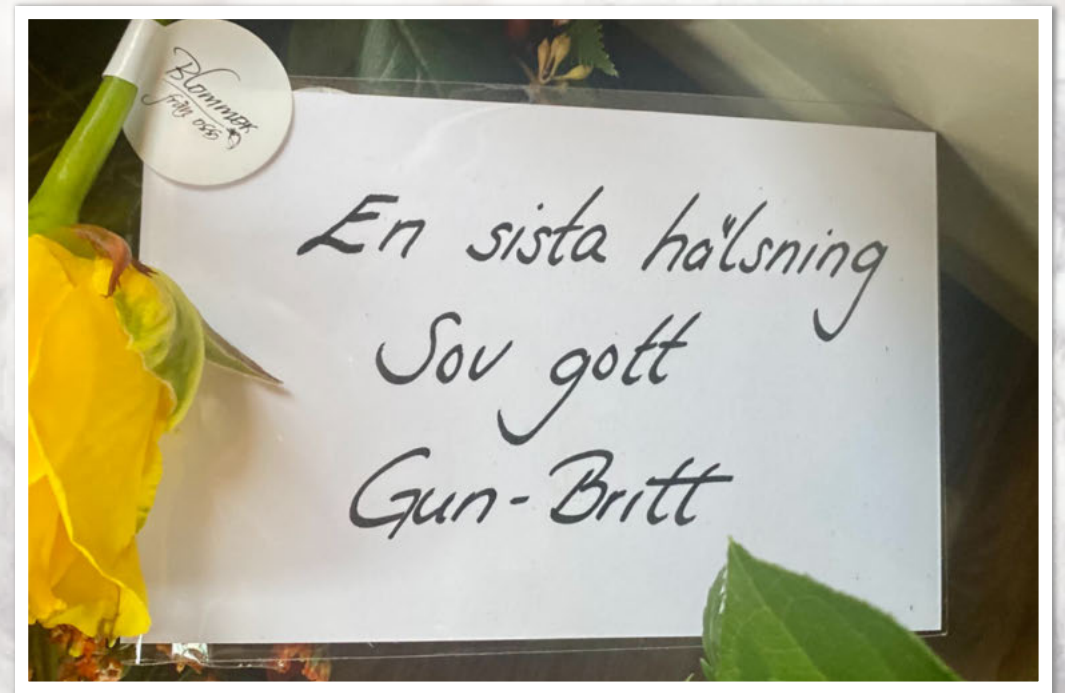 Blommor
från oss
En sista hälsning
Sov gott
Gun-Britt